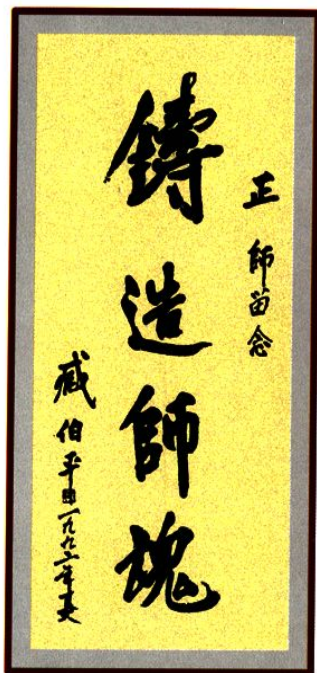 正 師留念
鑄造師魂
臧伯平 一九九二年夏